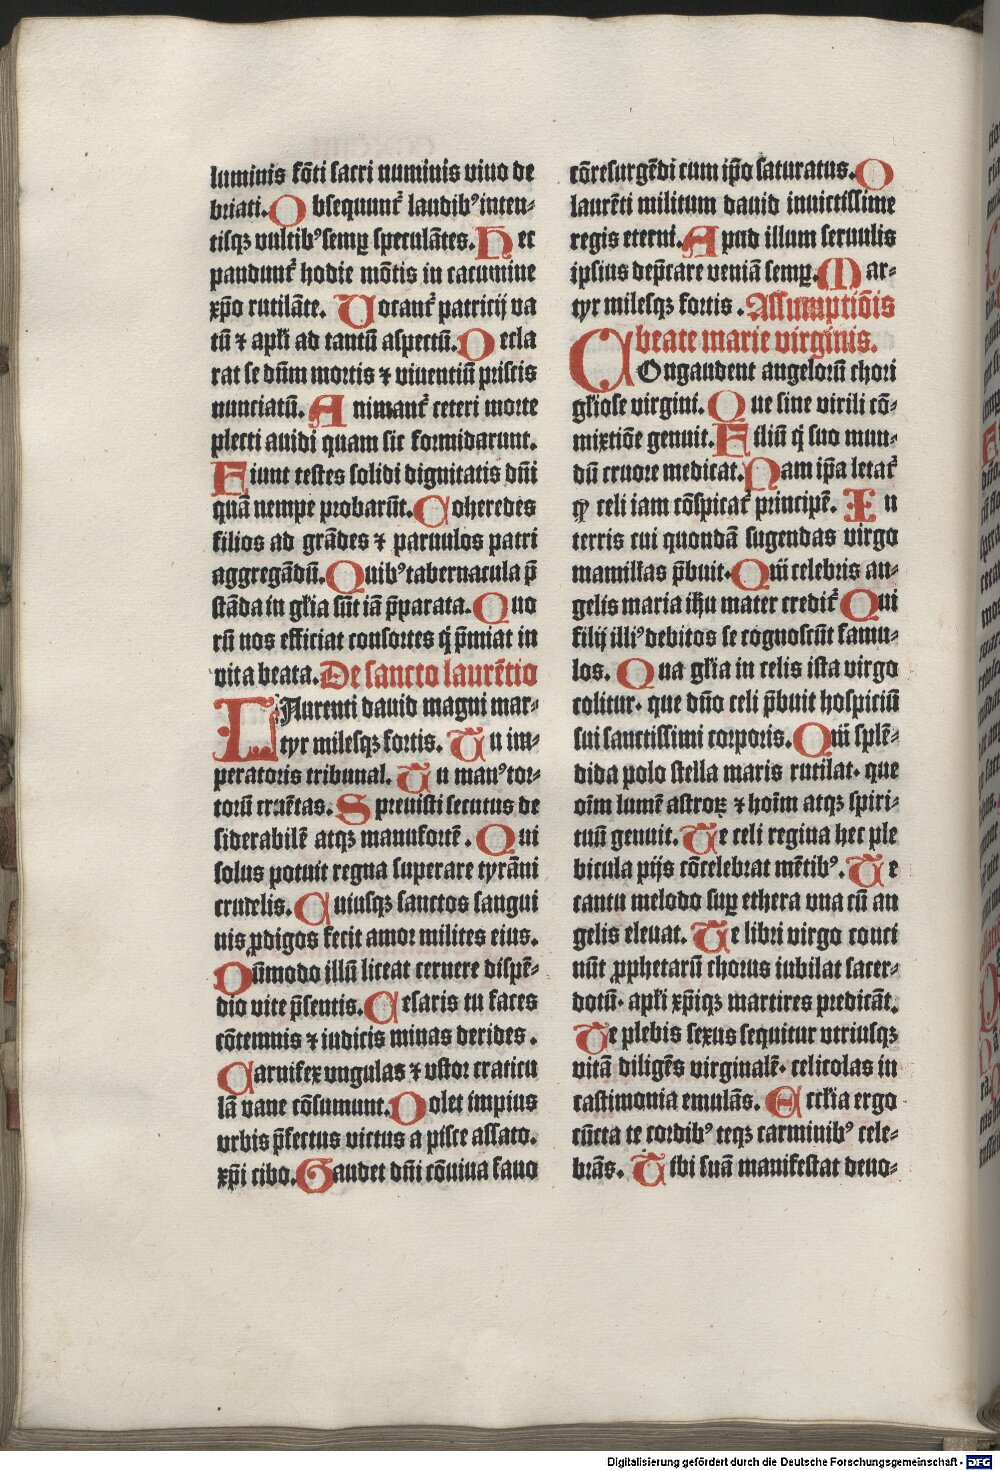 luminis fo̅ti sacri numinis viuo de
briati. Obsequunt᷑ laudibꝰ inten⸗
tisqꝫ vultibꝰ semꝑ specula̅tes. Hec
pandunt᷑ hodie mo̅tis in cacumine
xp̅o rutila̅te. Uocant᷑ patricij va
tu̅ ⁊ apl̅i ad tantu̅ aspectu̅. Decla
rat se du̅m mortis ⁊ viuentiu̅ priscis
nunciatu̅. Animant᷑ ceteri morte
plecti auidi quam sic formidarunt.
Fiunt testes solidi dignitatis dn̅i
qua̅ nempe probaru̅t. Coheredes
filios ad gra̅des ⁊ paruulos patri
aggrega̅du̅. Quibꝰ tabernacula p̅
sta̅da in gl̅ia su̅t ia̅ p̅parata. Quo
ru̅ nos efficiat consortes q̇ p̅miat in
vita beata. De sancto laure̅tio
LAurenti dauid magni mar⸗
tyr milesqꝫ fortis. Tu im⸗
peratoris tribunal. Tu manꝰ tor⸗
toru̅ crue̅tas. Spreuisti secutus de
siderabile̅ atqꝫ manuforte̅. Qui
solus potuit regna superare tyra̅ni
crudelis. Cuiusqꝫ sanctos sangui
nis ꝓdigos fecit amor milites eius.
Du̅modo illu̅ liceat cernere dispe̅⸗
dio vite p̅sentis. Cesaris tu fasces
co̅temnis ⁊ iudicis minas derides.
Carnifex vngulas ⁊ vstor craticu
la̅ vane co̅sumunt. Dolet impius
vrbis p̅fectus victus a pisce assato.
xp̅i cibo. Gaudet dn̅i co̅uiua fauo
co̅resurge̅di cum ip̅o saturatus. O
laure̅ti militum dauid inuictissime
regis eterni. Apud illum seruulis
ipsius dep̅care venia̅ semꝑ. Mar⸗
tyr milesqꝫ fortis. Assumptio̅is
beate marie virginis.
COngaudent angeloru̅ chori
gl̅iose virgini. Que sine virili co̅⸗
mixtio̅e genuit. Filiu̅ q̇ suo mun⸗
du̅ cruore medicat. Nam ip̅a letat᷑
ꝙ celi iam co̅spicat᷑ principe̅. In
terris cui quonda̅ sugendas virgo
mamillas p̅buit. Qua̅ celebris an⸗
gelis maria ih̅u mater credit᷑ Qui
filij illiꝰ debitos se cognoscu̅t famu⸗
los. Qua gl̅ia in celis ista virgo
colitur. que dn̅o celi p̅buit hospiciu̅
sui sanctissimi corporis. Qua̅ sple̅⸗
dida polo stella maris rutilat. que
oi̅m lume̅ astroꝝ ⁊ hoi̅m atqꝫ spiri⸗
tuu̅ genuit. Te celi regina hec ple
bicula pijs co̅celebrat me̅tibꝰ. Te
cantu melodo suꝑ ethera vna cu̅ an
gelis eleuat. Te libri virgo conci
nu̅t ꝓphetaru̅ chorus iubilat sacer⸗
dotu̅. apl̅i xp̅iqꝫ martires predica̅t.
Te plebis sexus sequitur vtriusqꝫ
vita̅ dilige̅s virginale̅. celicolas in
castimonia emula̅s. Eccl̅ia ergo
cu̅cta te cordibꝰ teqꝫ carminibꝰ cele⸗
bra̅s. Tibi sua̅ manifestat deuo⸗
Digitalisierung gefördert durch die Deutsche Forschungsgemeinschaft - DFG